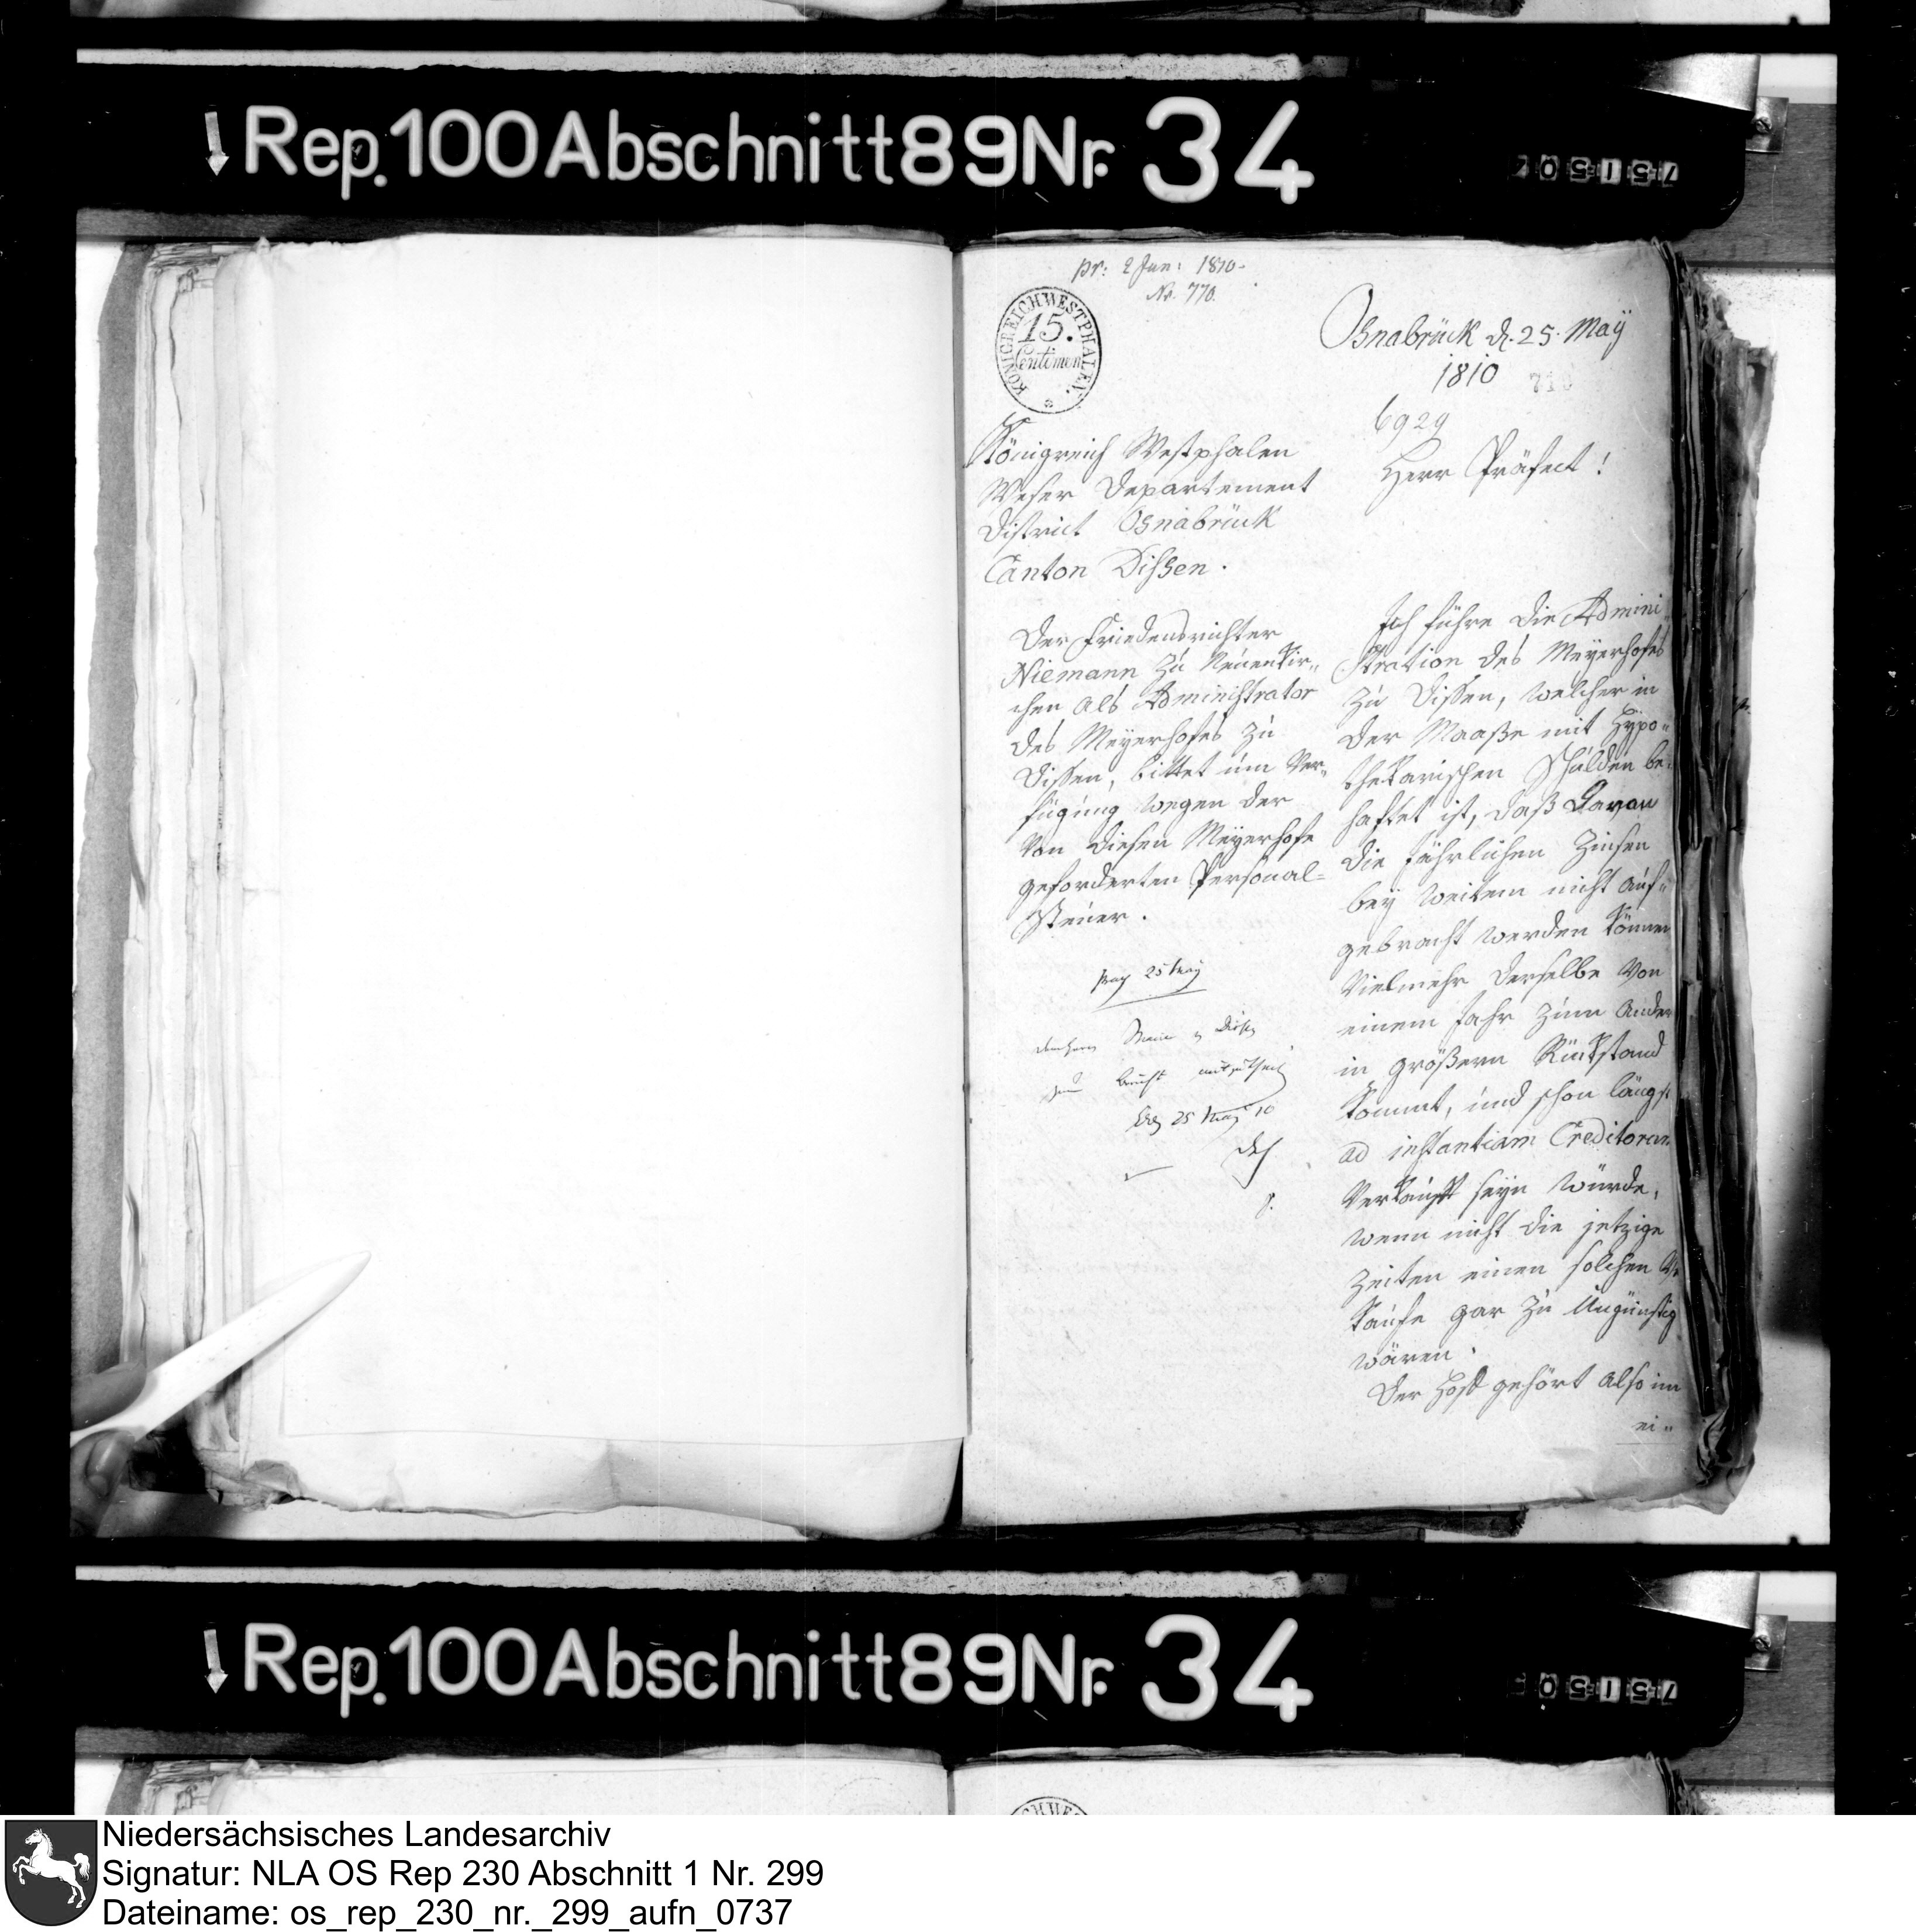 Rep. 100 Abschnitt 89 Nr. 34
pr: 2 Jun: 1810.
Nr. 770.
KÖNIGREICH WESTPHALEN.
15.
Centimen
Osnabrück d. 25. May
1810
6929
Königreich Westphalen
Weser Departement
District Osnabrück
Canton Dißen.
Herr Präfect!
Der Friedensrichter
Niemann zu Neuenkir„
chen als Administrator
des Meyerhofes zu
Dissen, bittet um Ver„
fügung wegen der
von diesen Meyerhofe
geforderten Personal=
Steuer.
25 May
zum Bericht mitzutheilen
25 May 10
Ich führe die Admini„
stration des Meyerhofes
zu Dissen, welcher in
der Maaße mit Hypo„
thekarischen Schulden be„
haftet ist, daß davon
die jährlichen Zinsen
bey weitem nicht auf„
gebracht werden können
vielmehr derselbe von
einem Jahr zum andern
in größern Rückstand
kommt, und schon längst
ad instantiam Creditorum
verkauft seyn würde,
wenn nicht die jetzige
Zeiten einen solchen
kaufe gar zu ungünstig
wären.
Der Hof gehört also im
ei„
Rep. 100 Abschnitt 89 Nr. 34
Niedersächsisches Landesarchiv
Signatur: NLA OS Rep 230 Abschnitt 1 Nr. 299
Dateiname: os_rep_230_nr._299_aufn_0737